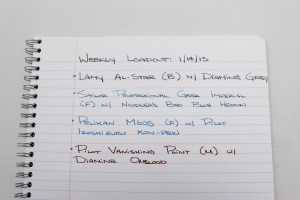 WEEKLY LOADOUT: 1/14/15
• LAMY AL-STAR (B) W/ DIAMINE GREY
• SAILOR PROFESSIONAL GEAR IMPERIAL
(F) W/ NOODLER'S BAD BLUE HERON
• PELIKAN M805 (F) W/ PILOT
IROSHIZUKU KON-PEKI
• PILOT VANISHING POINT (M) W/
DIAMINE OXBLOOD